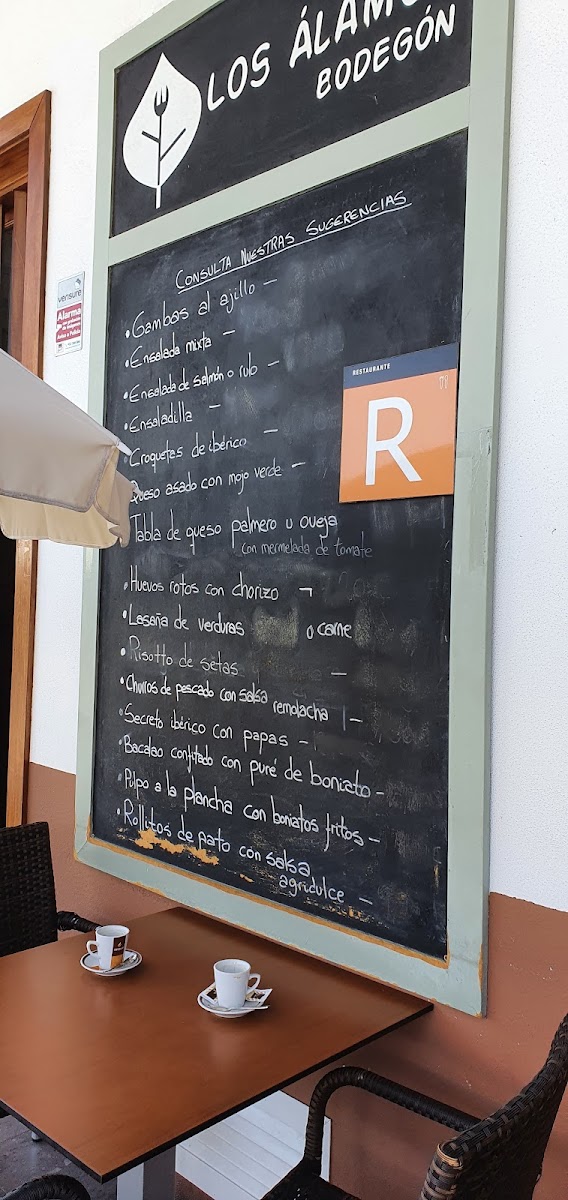 LOS ÁLAMOS
BODEGÓN
CONSULTA NUESTRAS SUGERENCIAS
• Gambas al ajillo –
• Ensalada mixta –
• Ensalada de salmón o rulo –
• Ensaladilla –
• Croquetas de ibérico –
• Queso asado con mojo verde –
• Tabla de queso palmero u oveja
con mermelada de tomate
• Huevos rotos con chorizo –
• Lasaña de verduras o carne
• Risotto de setas –
• Churros de pescado con salsa remolacha –
• Secreto ibérico con papas –
• Bacalao confitado con puré de boniato –
• Pulpo a la plancha con boniatos fritos –
• Rollitos de pato con salsa
agridulce –
RESTAURANTE
R
verisure
Alarma